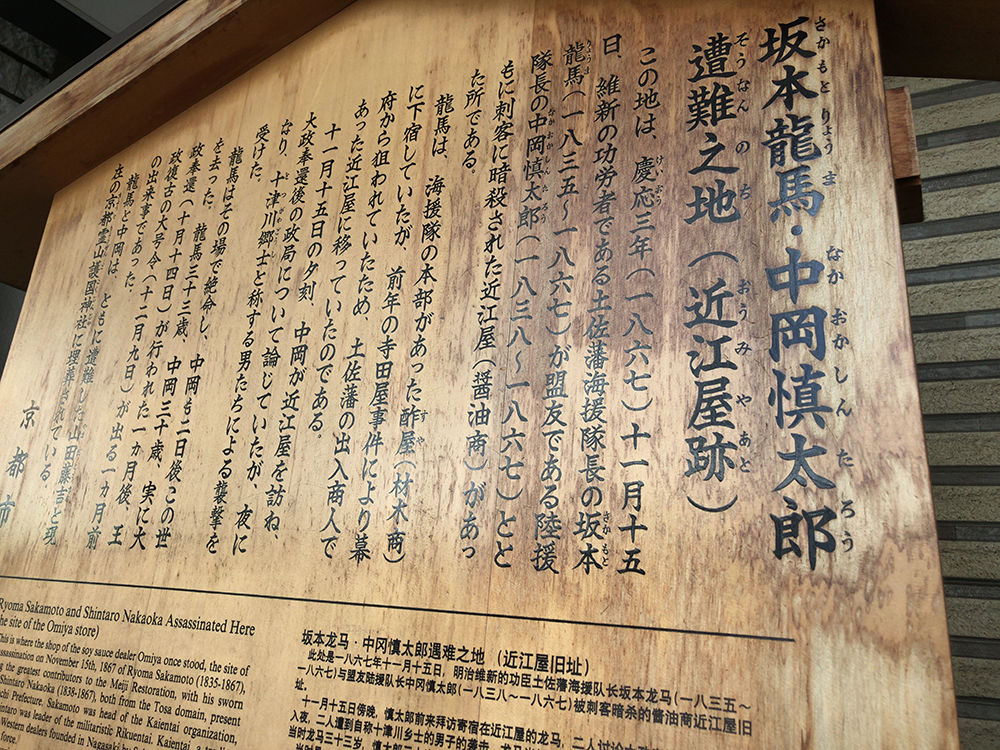 坂本龍馬・中岡慎太郎
遭難之地(近江屋跡)
この地は、慶応三年(一八六七)十一月十五
日、維新の功労者である土佐藩海援隊長の坂本
龍馬(一八三五~一八六七)が盟友である陸援
隊長の中岡慎太郎(一八三八~一八六七)とと
もに刺客に暗殺された近江屋(醤油商)があっ
た所である。
龍馬は、海援隊の本部があった酢屋(材木商)
に下宿していたが、前年の寺田屋事件により幕
府から狙われていたため、土佐藩の出入商人で
あった近江屋に移っていたのである。
十一月十五日の夕刻、中岡が近江屋を訪ね、
大政奉還後の政局について論じていたが、夜に
なり、十津川郷士と称する男たちによる襲撃を
受けた。
龍馬はその場で絶命し、中岡も二日後この世
を去った。龍馬三十三歳、中岡三十歳、実に大
政奉還(十月十四日)が行われた一カ月後、王
政復古の大号令(十二月九日)が出る一カ月前
の出来事であった。
龍馬と中岡は、ともに遭難した山田藤吉と現
在の京都霊山護国神社に埋葬されている。
京都市
Ryoma Sakamoto and Shintaro Nakaoka Assassinated Here
the site of the Omiya store)
This is where the shop of the soy sauce dealer Omiya once stood, the site of
assassination on November 15th, 1867 of Ryoma Sakamoto (1835-1867),
the greatest contributors to the Meiji Restoration, with his sworn
Shintaro Nakaoka (1838-1867), both from the Tosa domain, present
Prefecture. Sakamoto was head of the Kaientai organization,
was leader of the militaristic Rikuentai. Kaientai, a
Western dealers founded in Nagasaki
force.
坂本龙马・中冈慎太郎遇难之地(近江屋旧址)
此处是一八六七年十一月十五日,明治维新的功臣土佐藩海援队长坂本龙马(一八三五~
一八六七)与盟友陆援队长中冈慎太郎(一八三八~一八六七)被刺客暗杀的酱油商近江屋旧
址。
十一月十五日傍晚,慎太郎前来拜访寄宿在近江屋的龙马,二人讨论大政
入夜,二人遭到自称十津川乡士的男子的袭击,龙马当
当时龙马三十三岁,慎太郎